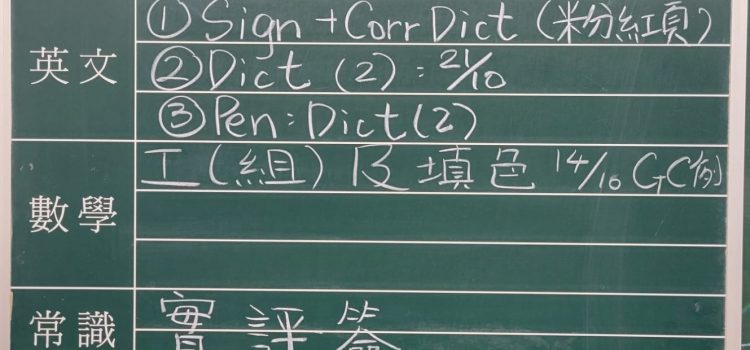 英文
①Sign + Corr Dict (粉紅頁)
②Dict (2) : 21/10
③Pen : Dict (2)
數學
工(組)及填色 14/10 GC例
常識
實評簽